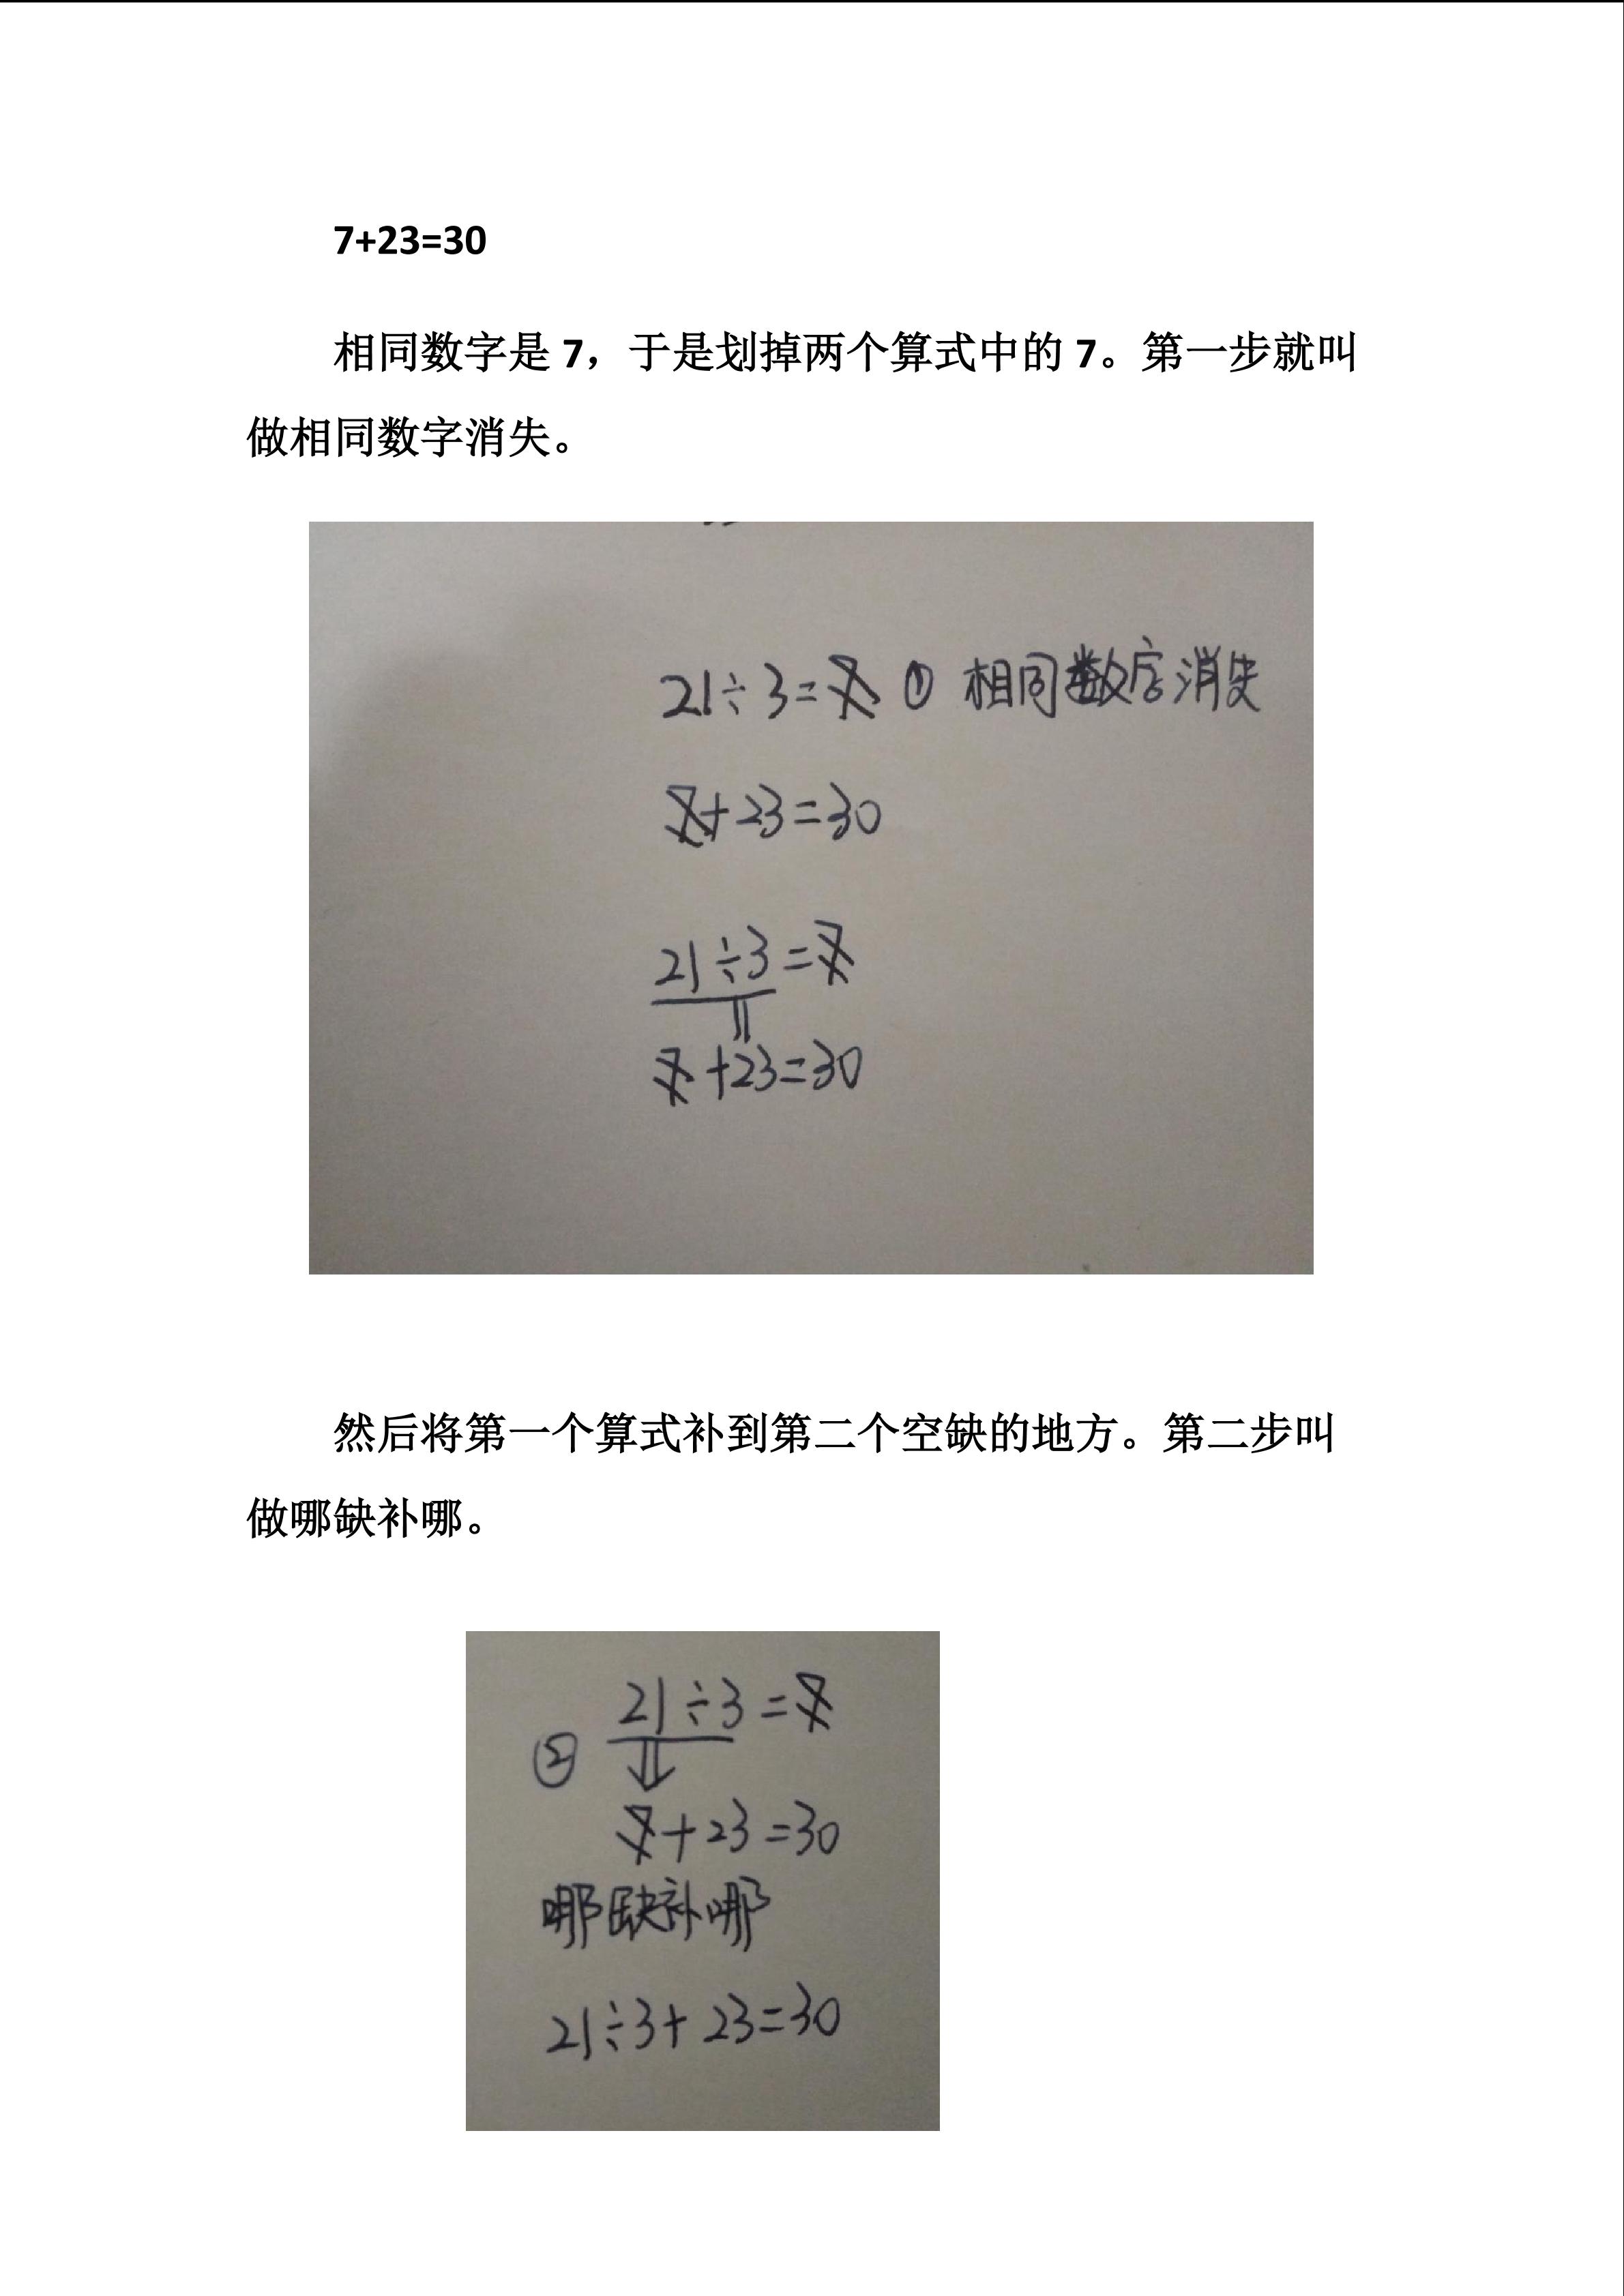 7+23=30
相同数字是 7，于是划掉两个算式中的 7。第一步就叫
做相同数字消失。
21÷3=7 ① 相同数字消失
7+23=30
21÷3=7
7+23=30
然后将第一个算式补到第二个空缺的地方。第二步叫
做哪缺补哪。
② 21÷3=7
7+23=30
哪缺补哪
21÷3+23=30